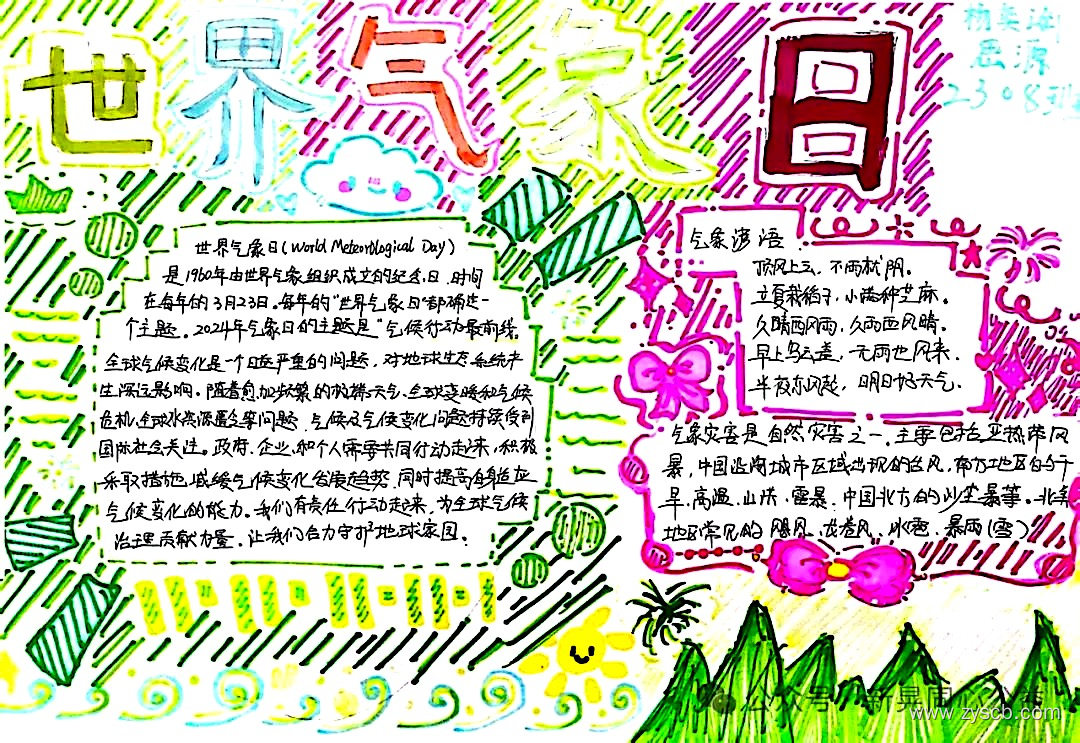 世界气象日
2308班
世界气象日(World Meteorological Day)
是1960年由世界气象组织成立的纪念日,时间
在每年的3月23日。每年的“世界气象日”都确定一
个主题。2024年气象日的主题是“气候行动最前线。
全球气候变化是一个日益严重的问题,对地球生态系统产
生深远影响。随着愈加频繁的极端天气、全球变暖和气候
危机、全球水资源匮乏等问题,气候及气候变化问题持续受到
国际社会关注。政府、企业、和个人需要共同行动起来,积极
采取措施,减缓气候变化发展趋势,同时提高自身适应
气候变化的能力。我们有责任行动起来,为全球气候
治理贡献力量。让我们合力守护地球家园。
气象谚语
顶风上云,不雨就阴。
立夏栽稻子,小满种芝麻。
久晴西风雨,久雨西风晴。
早上乌云盖,无雨也风来.
半夜东风起,明日好天气.
气象灾害是自然灾害之一,主要包括亚热带风
暴,中国沿海城市区域出现的台风,南方地区的干
旱、高温、山洪、雷暴、中国北方的沙尘暴等。北美
地区常见的飓风、龙卷风、冰雹、暴雨(雪)
公众号·新晃
www.zyscb.com